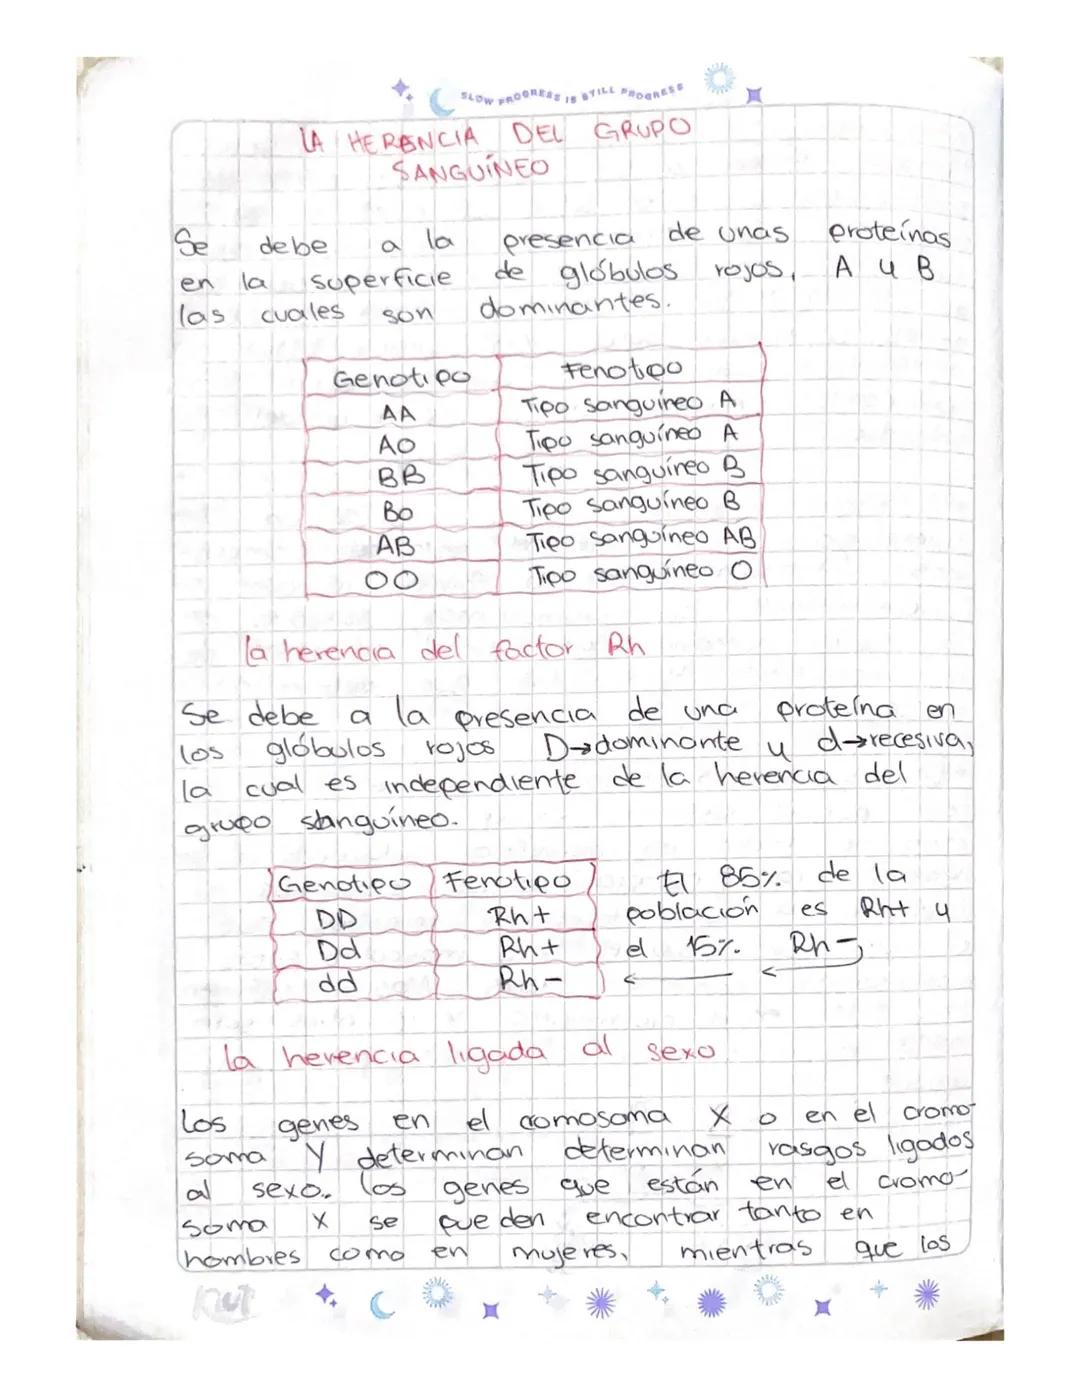 SLOW PROGRESS IS STILL PROGRESS
LA HERENCIA DEL GRUPO
SANGUÍNEO
Se debe a la presencia de unas proteínas
en la superficie de glóbulos rojos, A y B
las cuales son dominantes.
Genotipo Fenotipo
AA Tipo sanguíneo A
AO Tipo sanguíneo A
BB Tipo sanguíneo B
BO Tipo sanguíneo B
AB Tipo sanguíneo AB
OO Tipo sanguíneo O
la herencia del factor Rh
Se debe a la presencia de una proteína en
los glóbulos rojos D→dominante y d→recesiva,
la cual es independiente de la herencia del
grupo sanguíneo.
Genotipo Fenotipo
DD Rh+
Dd Rh+
dd Rh-
El 85% de la
población es Rh+ y
el 15% Rh-
la herencia ligada al sexo
Los genes en el cromosoma X o en el cromo-
soma Y determinan determinan rasgos ligados
al sexo. los genes que están en el cromo-
soma X se pueden encontrar tanto en
hombres como en mujeres, mientras que los